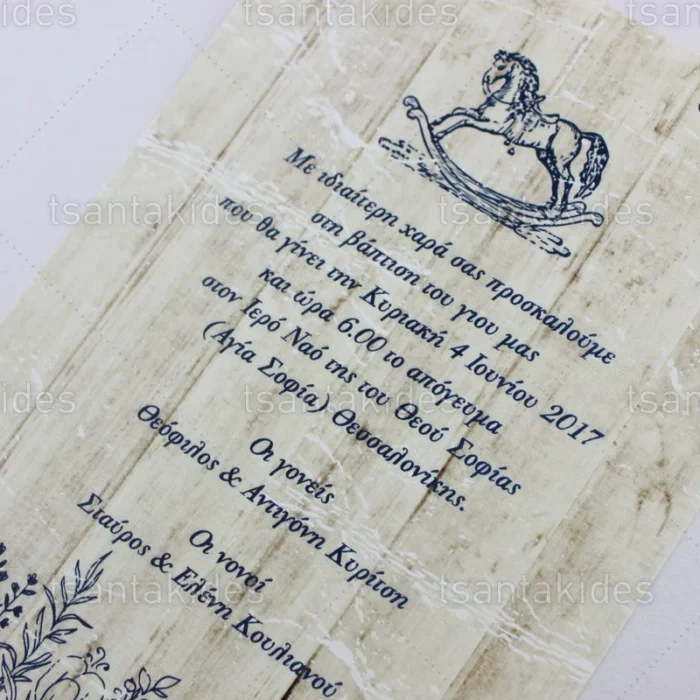 Με ιδιαίτερη χαρά σας προσκαλούμε
στη βάπτιση του γιου μας
που θα γίνει την Κυριακή 4 Ιουνίου 2017
και ώρα 6.00 το απόγευμα
στον Ιερό Ναό της του Θεού Σοφίας
(Αγία Σοφία) Θεσσαλονίκης.
Οι γονείς
Θεόφιλος & Αντιγόνη Κυρίτση
Οι νονοί
Σταύρος & Ελένη Κουλιανού
tsantakides
tsantakides
tsantakides
tsantakides
tsantakides
tsantakides
tsantakides
tsantakides
tsantakides